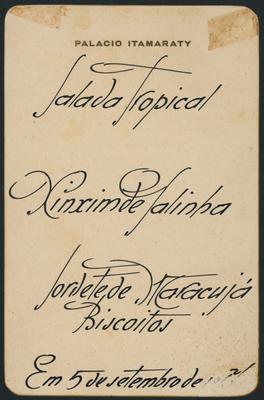 PALACIO ITAMARATY
Salada Tropical
Xinxim de Galinha
Sorvete de Maracujá
Biscoitos
Em 5 de setembro de